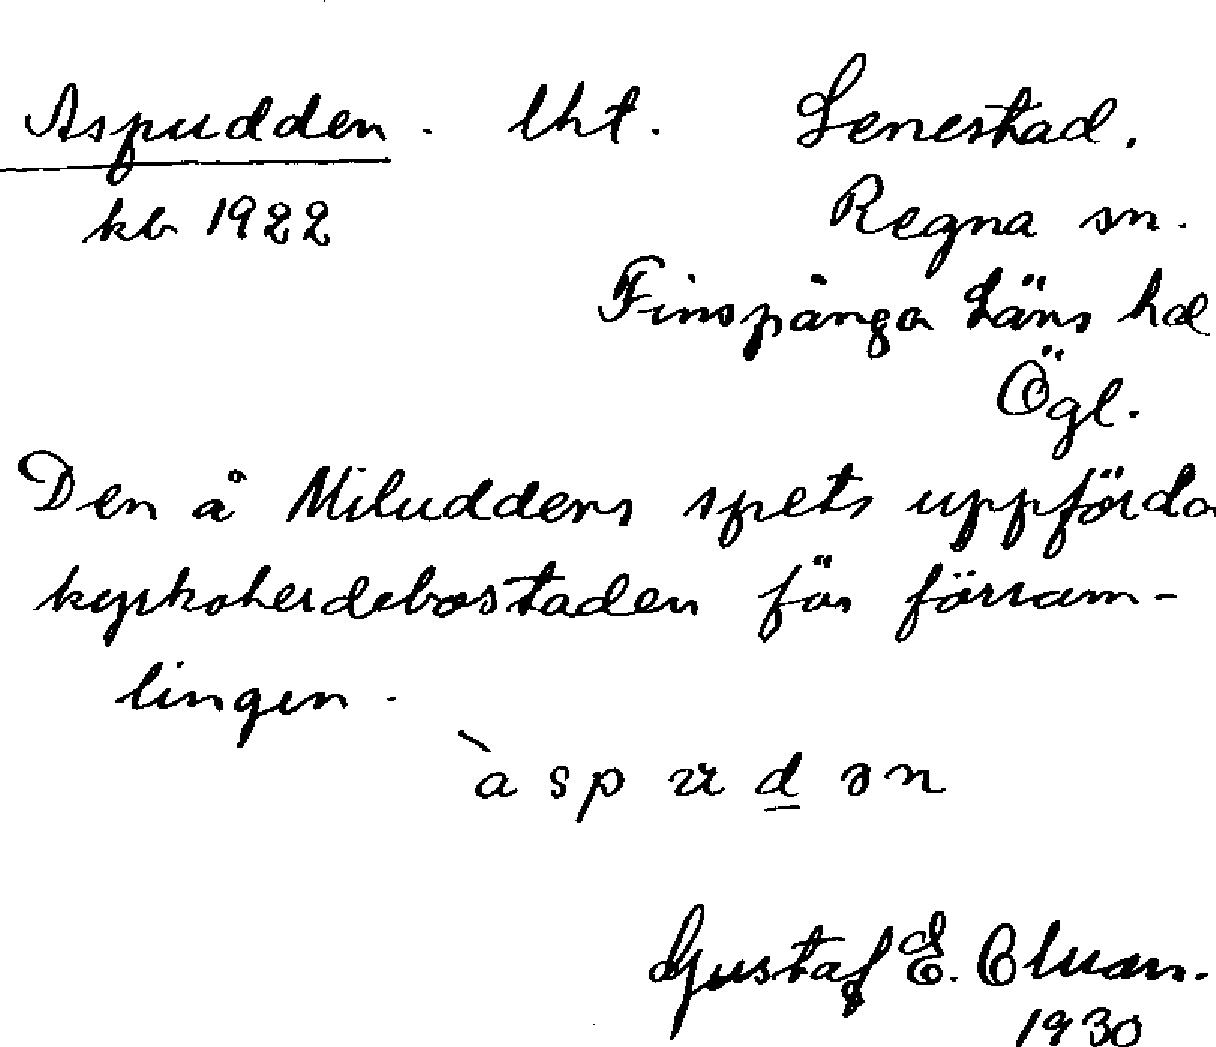 Aspudden. lht. Senestad.
kb 1922 Regna sn.
Finspånga Läns hd
Ögl.
Den å Miluddens spets uppförda
kyrkoherdebostaden för försam-
lingen.
àspudən
Gustaf E.
1930